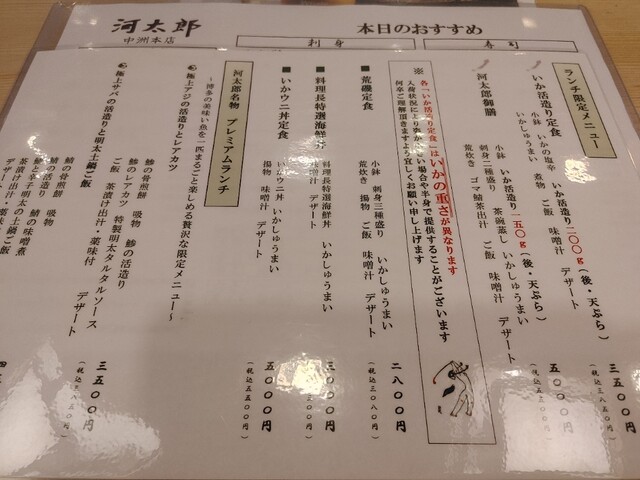 河太郎
中洲本店
本日のおすすめ
刺身
寿司
ランチ限定メニュー
いか活造り定食
いか活造り二〇〇g(後・天ぷら)
小鉢 いかの塩辛
いかしゅうまい 煮物 ご飯 味噌汁 デザート
三五〇〇円
河太郎御膳
いか活造り一五〇g(後・天ぷら)
小鉢 茶碗蒸し いかしゅうまい
刺身三種盛り ご飯 味噌汁 デザート
荒炊き ゴマ鯖茶出汁
五〇〇〇円
※各「いか活造り定食」はいかの重さが異なります
入荷状況により烏賊がない場合や半身で提供することがございます
何卒ご理解頂きますよう宜しくお願い申し上げます
■荒磯定食
小鉢 刺身三種盛り いかしゅうまい
荒炊き 揚物 ご飯 味噌汁 デザート
二八〇〇円
(税込三〇八〇円)
■料理長特選海鮮丼
料理長特選海鮮丼 いかしゅうまい
味噌汁 デザート
三〇〇〇円
(税込三三〇〇円)
■いかウニ丼定食
いかウニ丼 いかしゅうまい
揚物 味噌汁 デザート
五〇〇〇円
(税込五五〇〇円)
河太郎名物 プレミアムランチ
~博多の美味い魚を一匹まるごと楽しめる贅沢な限定メニュー~
極上アジの活造りとレアカツ
鯵の骨煎餅 吸物 鯵の活造り
鯵のレアカツ 特製明太タルタルソース
ご飯 茶漬け出汁・薬味付 デザート
三五〇〇円
(税込三八五〇円)
極上サバの活造りと明太土鍋ご飯
鯖の骨煎餅 吸物
鯖の活造り 鯖の味噌煮
鯖と辛子明太の土鍋ご飯
茶漬け出汁・薬味
デザート